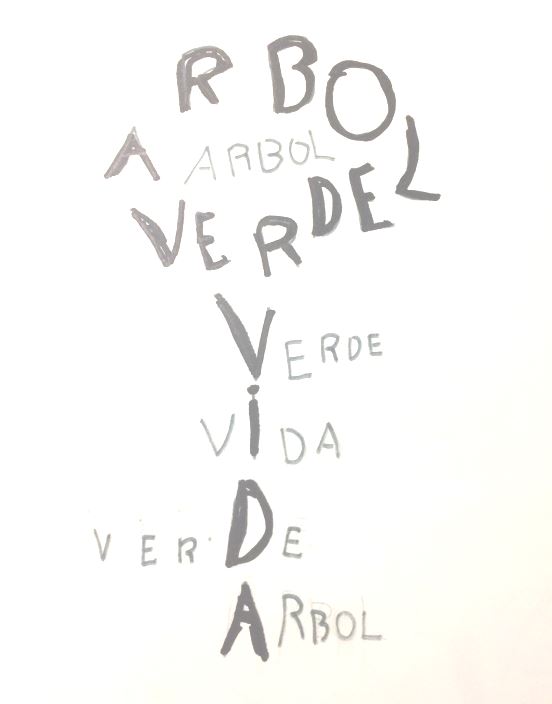 ARBOL
ARBOL
VERDE
VERDE
VIDA
VERDE
ARBOL